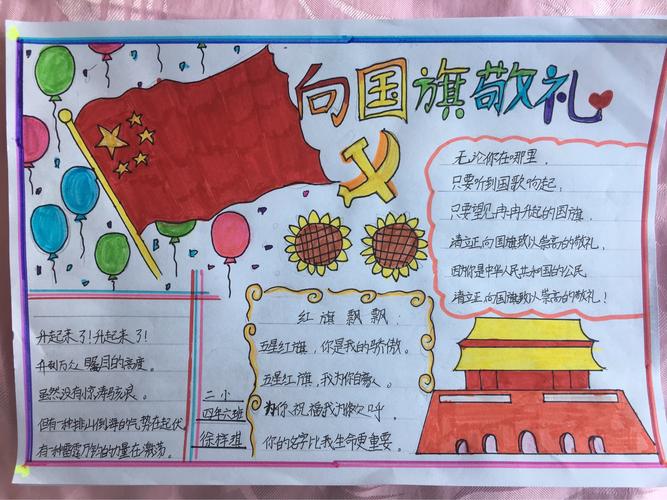 向国旗敬礼
无论你在哪里,
只要听到国歌响起,
只要望见冉冉升起的国旗,
请立正,向国旗致以崇高的敬礼,
因你是中华人民共和国的公民,
请立正,向国旗致以崇高的敬礼!
升起来了!升起来了!
升到万众瞩目的高度。
虽然没有惊涛骇浪。
但有一种排山倒海的气势在起伏
有一种雷霆万钧的力量在激荡。
二小
四年六班
徐梓琪
红旗飘飘:
五星红旗,你是我的骄傲。
五星红旗,我为你自豪。
为你祝福我为你欢呼。
你的名字比我生命更重要。